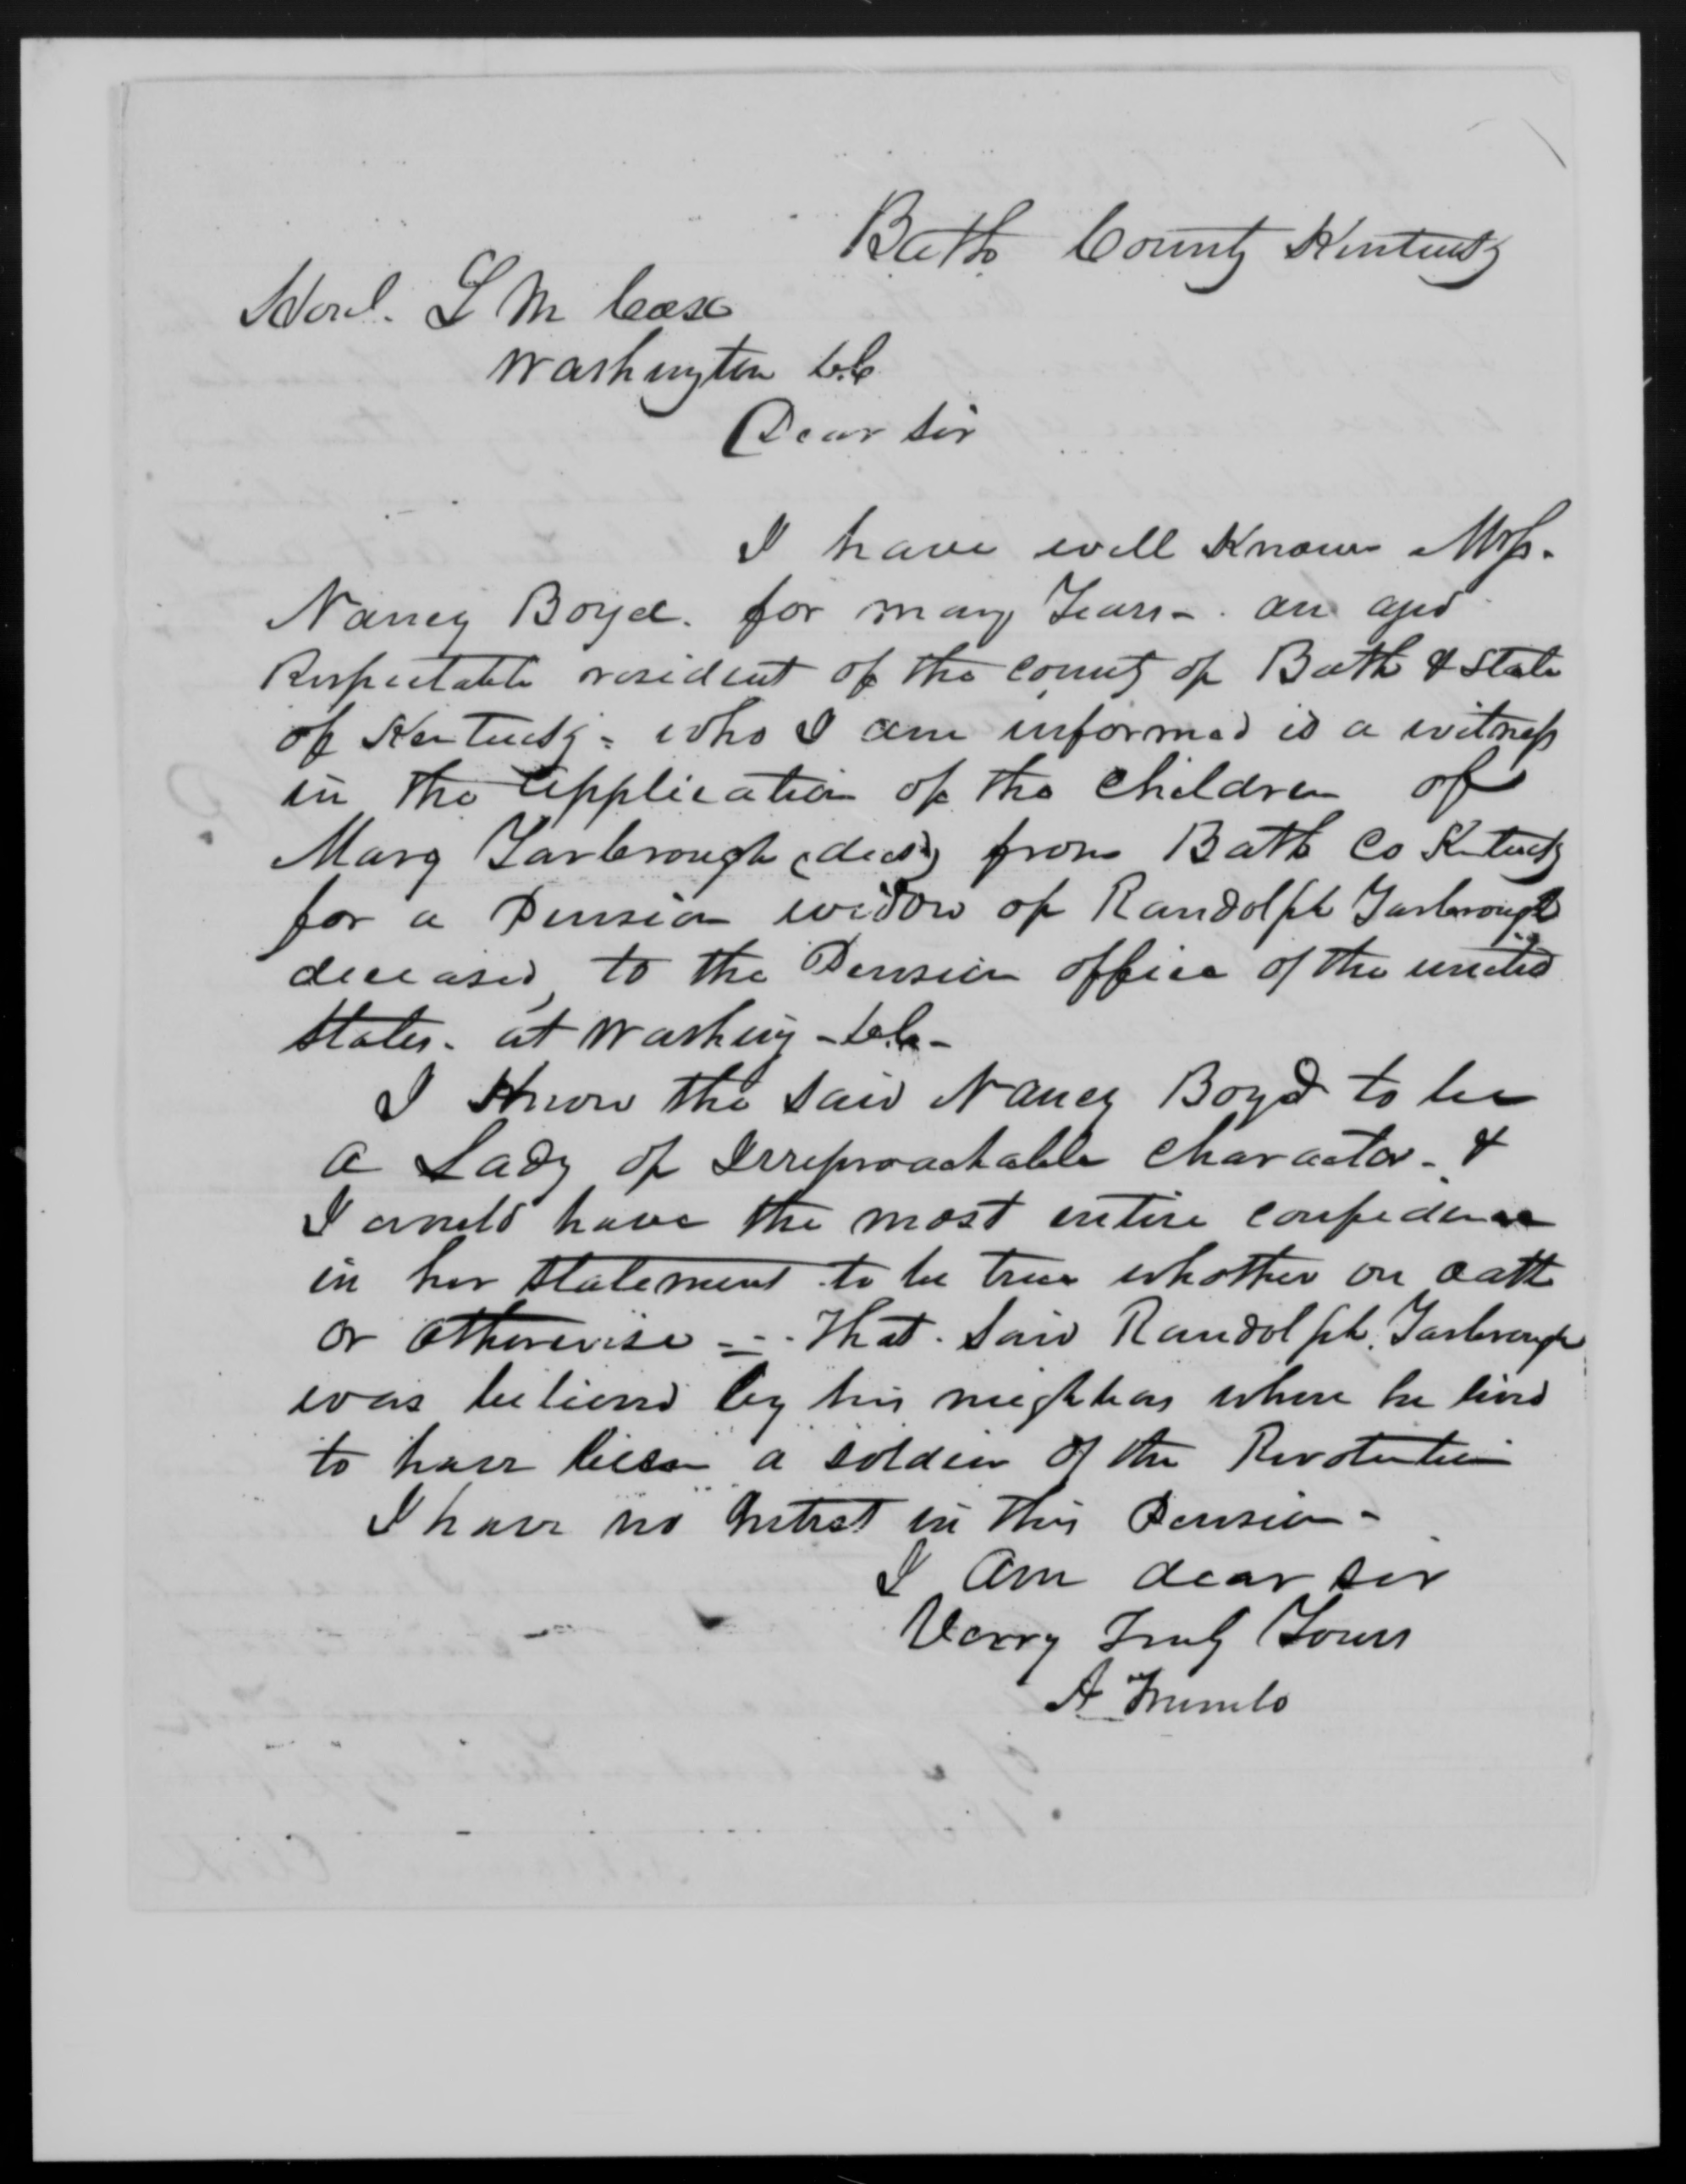 Bath County Kentucky
Honl. L M Cox
Washington D.C.
Dear Sir
I have well Known Mrs.
Nancy Boyd. for many Years -. an aged
Respectable resident of the County of Bath & State
of Kentucky - who I am informed is a witness
in the application of the Children of
Mary Yarbrough (decsd) from Bath Co Kentucky
for a Pension widow of Randolph Yarbrough
deceased, to the Pension office of the united
States. at Washing - D.C. -
I Know the said Nancy Boyd to be
a Lady of Irreproachable Character - &
I would have the most entire confidence
in her statement to be true whether on oath
or otherwise - - . That. said Randolph. Yarbrough
was believd by his neighbors where he lived
to have been a soldier of the Revolution
I have no Intrest in this Pension -
I am dear sir
Verry Truly Yours
A Trumbo